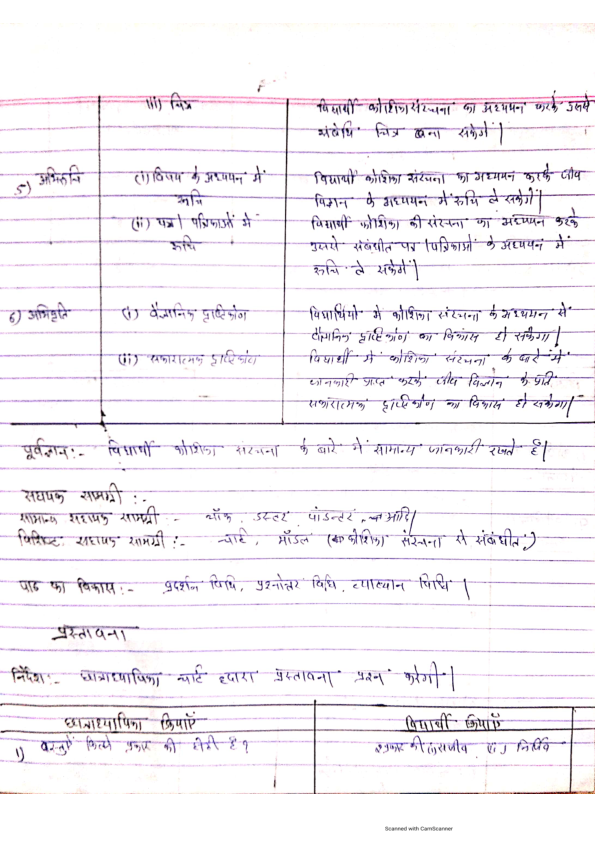 iii) चित्र
विद्यार्थी कोशिका संरचना का अध्ययन करके उससे
संबंधि चित्र बना सकेगें |
5) अभिरूचि
(i) विषय के अध्ययन में
रूचि
विद्यार्थी कोशिका संरचना का अध्ययन करके जीव
विज्ञान के अध्ययन में रूचि ले सकेगें |
(ii) पत्र | पत्रिकाओं में
रूचि
विद्यार्थी कोशिका की संरचना का अध्ययन करके
उससे संबंधीत पत्र | पत्रिकाओं के अध्ययन में
रूचि ले सकेगें |
6) अभिवृति
(i) वैज्ञानिक दृष्टिकोण
विद्यार्थियों में कोशिका संरचना के अध्ययन से
वैज्ञानिक दृष्टिकोण का विकास हो सकेगा |
(ii) सकारात्मक दृष्टिकोण
विद्यार्थी में कोशिका संरचना के बारे में
जानकारी प्राप्त करके जीव विज्ञान के प्रति
सकारात्मक दृष्टिकोण का विकास हो सकेगा |
पूर्वज्ञान :- विद्यार्थी कोशिका संरचना के बारे में सामान्य जानकारी रखते है |
सहायक सामग्री :-
सामान्य सहायक सामग्री :- चॉक, डस्टर, पांडन्टर, आदि |
विशिष्ट सहायक सामग्री :- चार्ट, मॉडल (कोशिका संरचना से संबंधीत)
पाठ का विकास :- प्रदर्शन विधि, प्रश्नोत्तर विधि, व्याख्यान विधि |
प्रस्तावना
निर्देश :- छात्राध्यापिका चार्ट द्वारा प्रस्तावना प्रश्न करेगी |
छात्राध्यापिका क्रियाएँ
विद्यार्थी क्रियाएँ
1) वस्तुएँ कितने प्रकार की होती है ?
प्रकार की सजीव एंव निर्जिव
Scanned with CamScanner